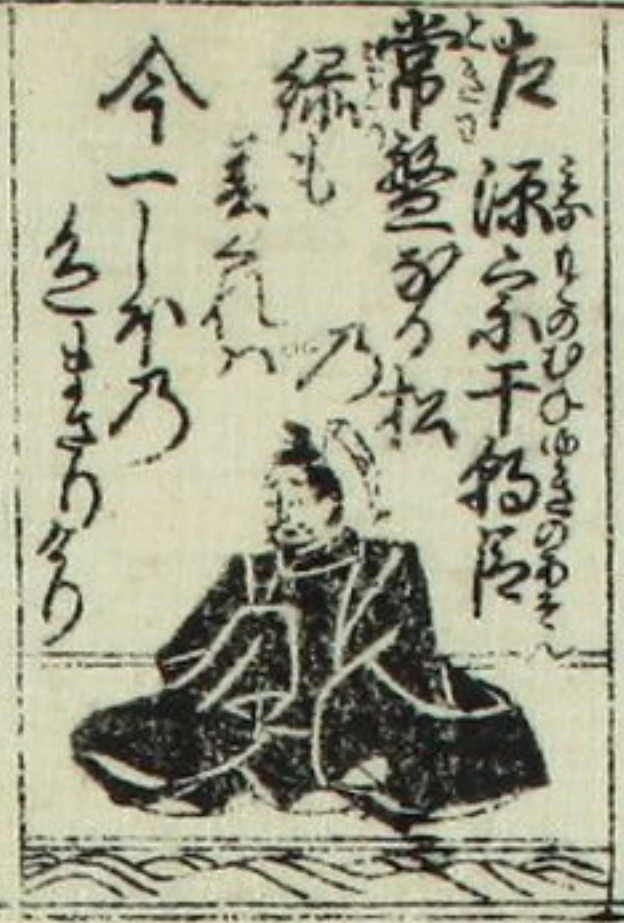 左 源宗于朝臣
みなもとのむねゆきのあそん
常盤なる松
ときは
乃
緑も
みどり
春くれハ
今一しほ乃
色まさりけり